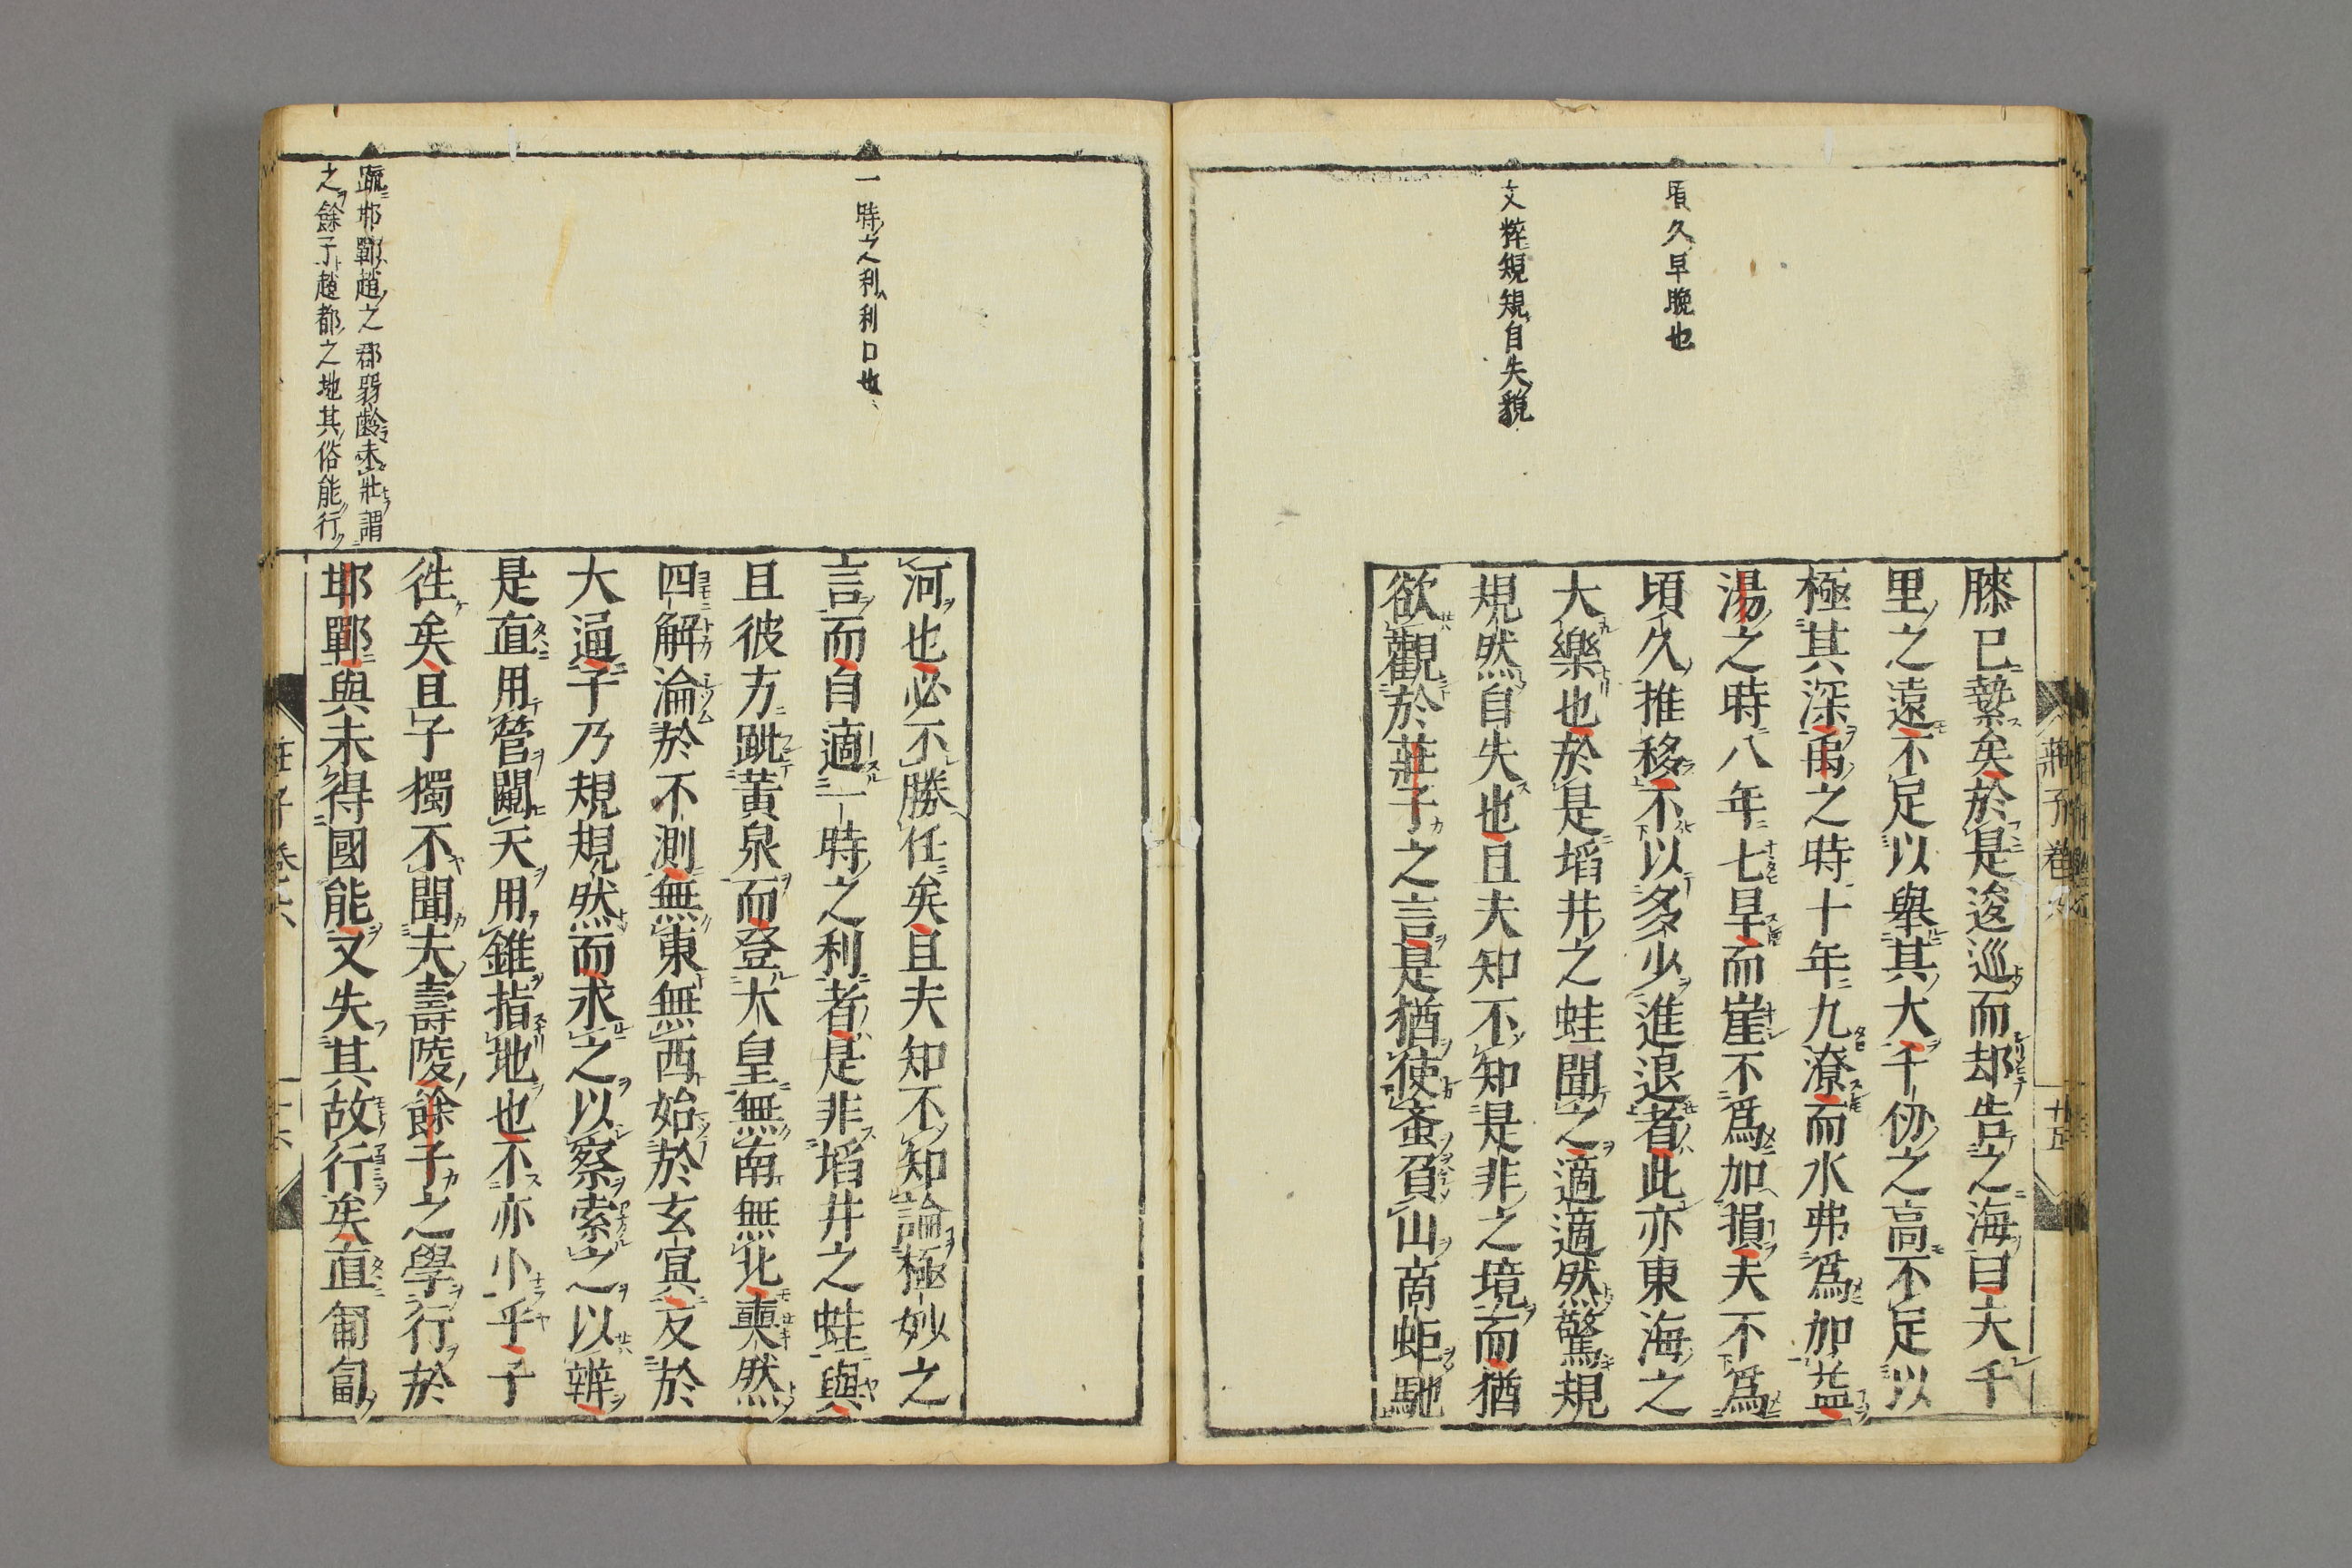 頃久早晚也
文粹規規自失貌
膝已縶矣於是逡巡而却告之海曰夫千
里之遠不足以舉其大千仞之高不足以
極其深禹之時十年九潦而水弗爲加益
湯之時八年七旱而崖不爲加損夫不爲
頃久推移不以多少進退者此亦東海之
大樂也於是埳井之蛙聞之適適然驚規
規然自失也且夫知不知是非之境而猶
欲觀於莊子之言是猶使蚉負山商蚷馳
莊子卷六
十五
一時之利利口也
疏邯鄲趙之郡弱齡未壯謂
之餘子趙都之地其俗能行
河也必不勝任矣且夫知不知論極妙之
言而自適一時之利者是非埳井之蛙與
且彼方跐黃泉而登大皇無南無北奭然
四解淪於不測無東無西始於玄冥反於
大通子乃規規然而求之以察索之以辨
是直用管闚天用錐指地也不亦小乎子
往矣且子獨不聞夫壽陵餘子之學行於
邯鄲與未得國能又失其故行矣直匍匐
莊子卷六
十六